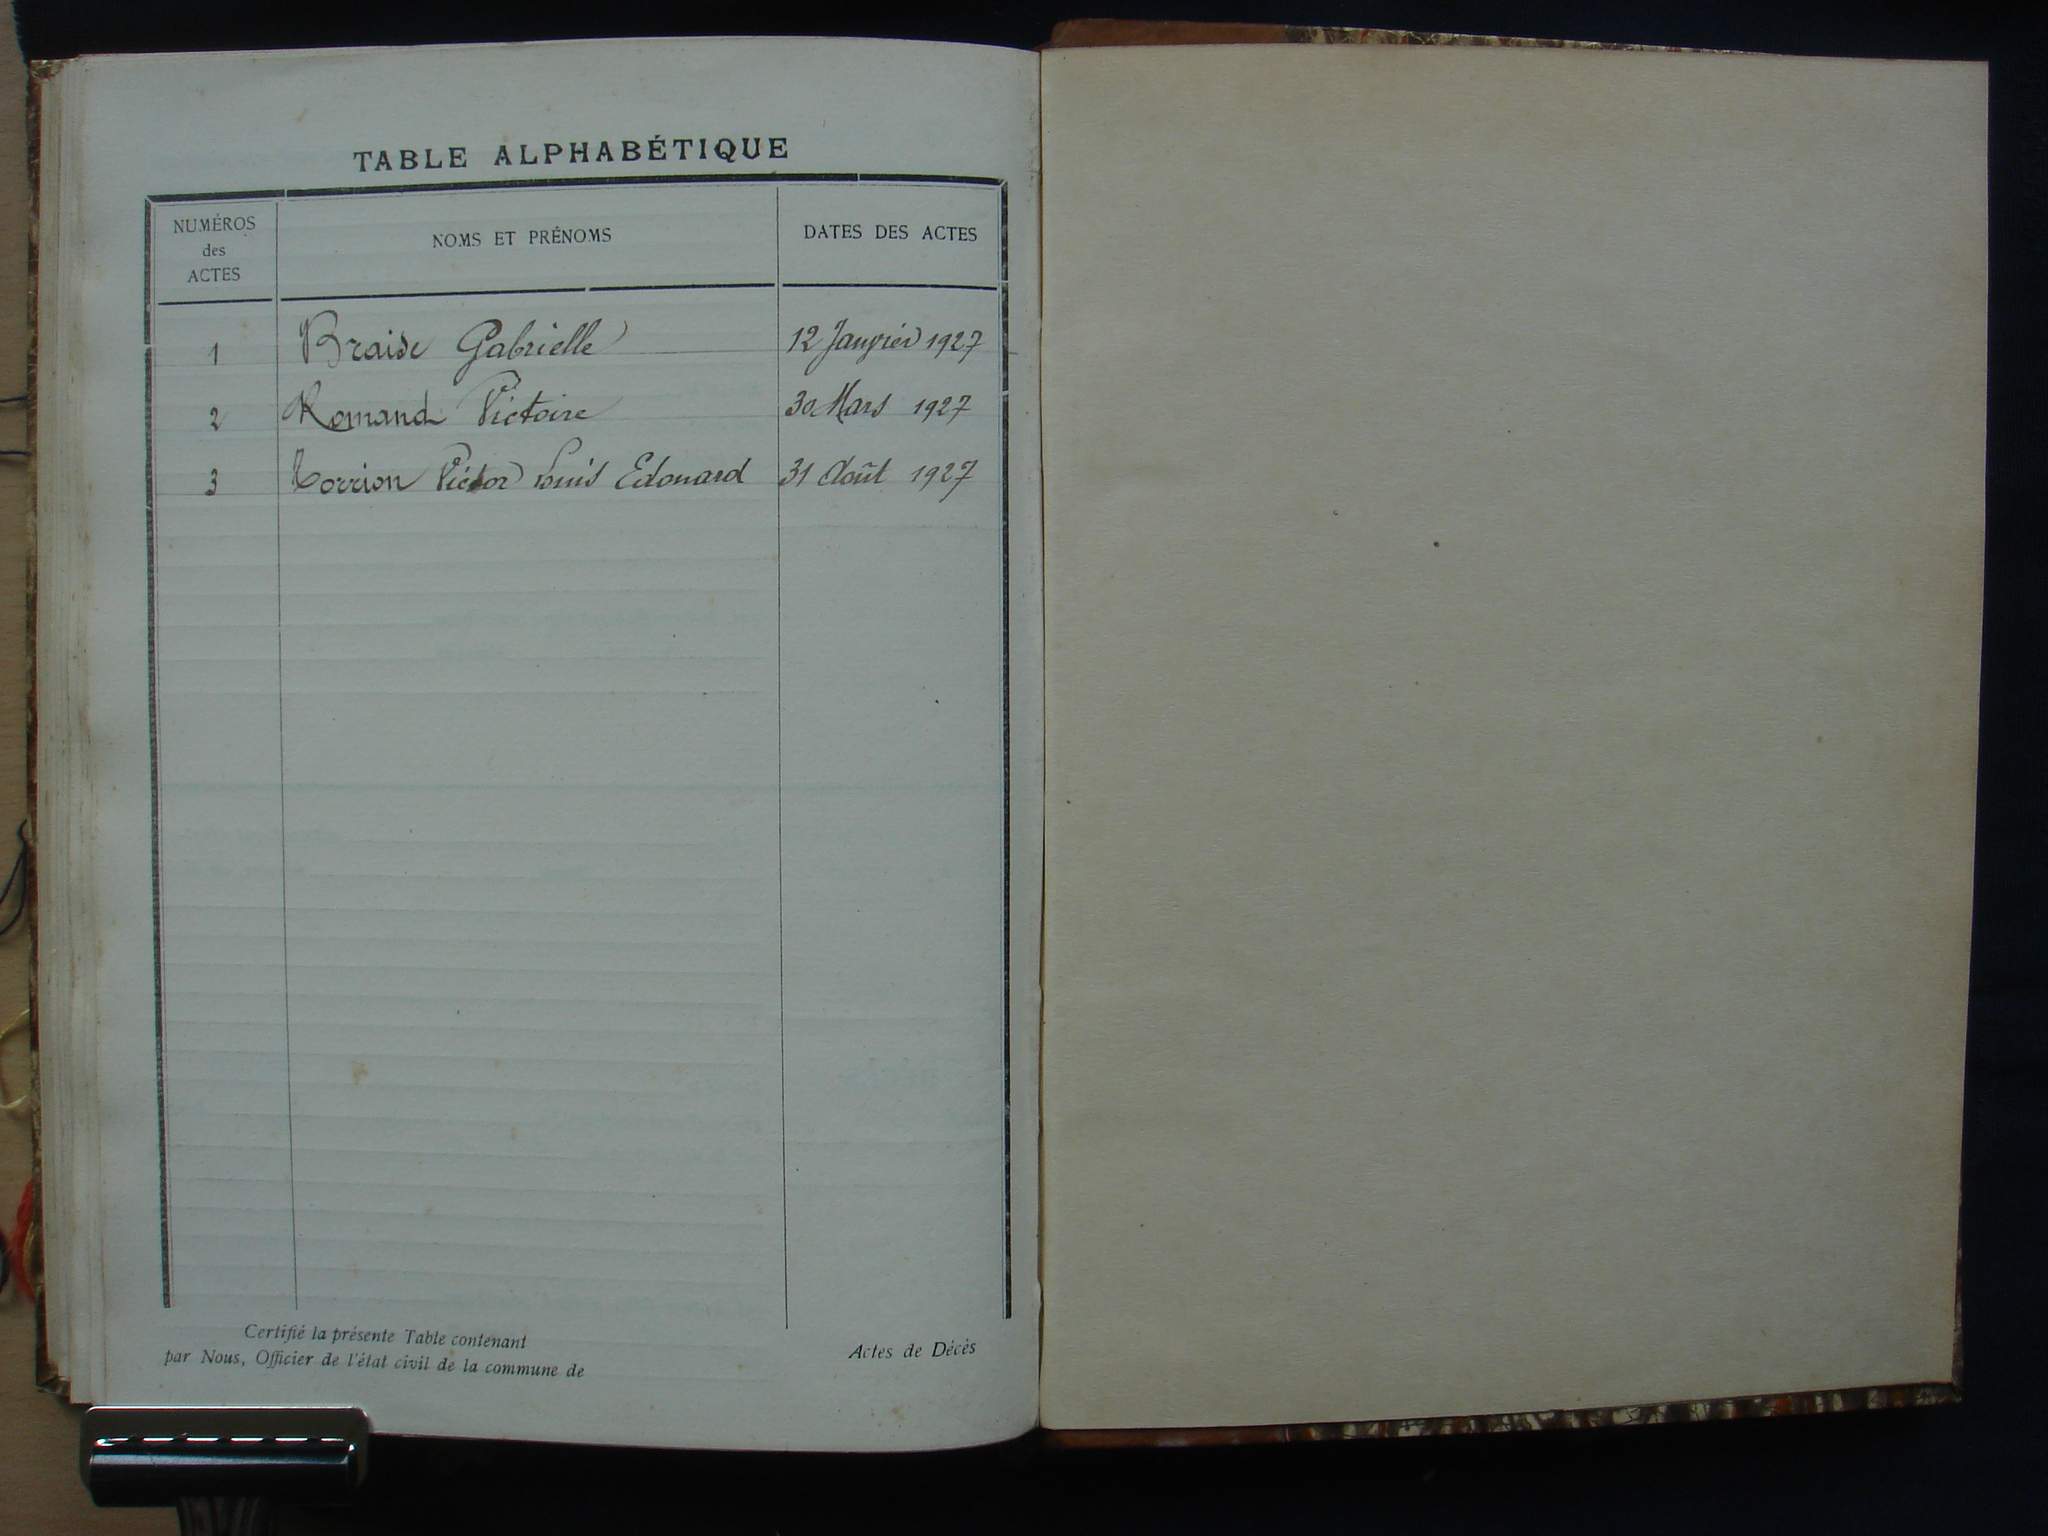 TABLE ALPHABÉTIQUE
NUMÉROS
des
ACTES
NOMS ET PRÉNOMS
DATES DES ACTES
1 Braise Gabrielle 12 Janvier 1927
2 Romand Victoire 30 Mars 1927
3 Torrion Victor Louis Edouard 31 Août 1927
Certifié la présente Table contenant
Actes de Décès
par Nous, Officier de l'état civil de la commune de